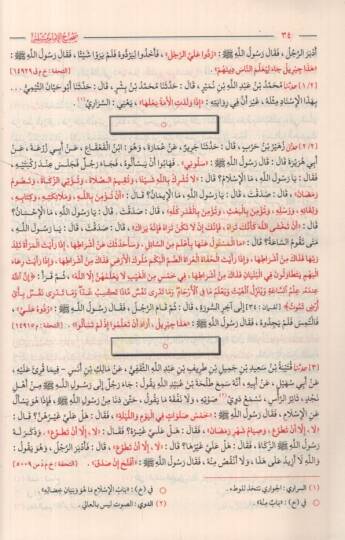 ٣٤
أَدْبَرَ الرَّجُلُ، فَقَالَ رَسُولُ اللَّهِ ﷺ: «رُدُّوا عَلَيَّ الرَّجُلَ»، فَأَخَذُوا لِيَرُدُّوهُ فَلَمْ يَرَوْا شَيْئًا، فَقَالَ رَسُولُ اللَّهِ ﷺ:
«هَذَا جِبْرِيلُ جَاءَ لِيُعَلِّمَ النَّاسَ دِينَهُمْ».
(١/٢) حَدَّثَنَا مُحَمَّدُ بْنُ عَبْدِ اللَّهِ بْنِ نُمَيْرٍ، قَالَ: حَدَّثَنَا مُحَمَّدُ بْنُ بِشْرٍ، قَالَ: حَدَّثَنَا أَبُو حَيَّانَ التَّيْمِيُّ...
بِهَذَا الْإِسْنَادِ مِثْلَهُ، غَيْرَ أَنَّ فِي رِوَايَتِهِ: «إِذَا وَلَدَتِ الْأَمَةُ بَعْلَهَا»، يَعْنِي: السَّرَارِيَّ
(٢/٢) حَدَّثَنَا زُهَيْرُ بْنُ حَرْبٍ، قَالَ: حَدَّثَنَا جَرِيرٌ، عَنْ عُمَارَةَ، وَهُوَ: ابْنُ الْقَعْقَاعِ، عَنْ أَبِي زُرْعَةَ، عَنْ
أَبِي هُرَيْرَةَ قَالَ: قَالَ رَسُولُ اللَّهِ ﷺ: «سَلُونِي». فَهَابُوا أَنْ يَسْأَلُوهُ، فَجَاءَ رَجُلٌ فَجَلَسَ عِنْدَ رُكْبَتَيْهِ،
فَقَالَ: يَا رَسُولَ اللَّهِ، مَا الْإِسْلَامُ؟ قَالَ: «لَا تُشْرِكُ بِاللَّهِ شَيْئًا، وَتُقِيمُ الصَّلَاةَ، وَتُؤْتِي الزَّكَاةَ، وَتَصُومُ
رَمَضَانَ» قَالَ: صَدَقْتَ. قَالَ: يَا رَسُولَ اللَّهِ، مَا الْإِيمَانُ؟ قَالَ: «أَنْ تُؤْمِنَ بِاللَّهِ، وَمَلَائِكَتِهِ، وَكِتَابِهِ،
وَلِقَائِهِ، وَرُسُلِهِ، وَتُؤْمِنَ بِالْبَعْثِ، وَتُؤْمِنَ بِالْقَدَرِ كُلِّهِ»، قَالَ: صَدَقْتَ، قَالَ: يَا رَسُولَ اللَّهِ، مَا الْإِحْسَانُ؟
قَالَ: «أَنْ تَخْشَى اللَّهَ كَأَنَّكَ تَرَاهُ، فَإِنَّكَ إِنْ لَا تَكُنْ تَرَاهُ فَإِنَّهُ يَرَاكَ»، قَالَ: صَدَقْتَ، قَالَ: يَا رَسُولَ اللَّهِ،
مَتَى تَقُومُ السَّاعَةُ؟ قَالَ: «مَا الْمَسْئُولُ عَنْهَا بِأَعْلَمَ مِنَ السَّائِلِ، وَسَأُحَدِّثُكَ عَنْ أَشْرَاطِهَا، إِذَا رَأَيْتَ الْمَرْأَةَ تَلِدُ
رَبَّهَا فَذَاكَ مِنْ أَشْرَاطِهَا، وَإِذَا رَأَيْتَ الْحُفَاةَ الْعُرَاةَ الصُّمَّ الْبُكْمَ مُلُوكَ الْأَرْضِ فَذَاكَ مِنْ أَشْرَاطِهَا، وَإِذَا رَأَيْتَ رِعَاءَ
الْبَهْمِ يَتَطَاوَلُونَ فِي الْبُنْيَانِ فَذَاكَ مِنْ أَشْرَاطِهَا، فِي خَمْسٍ مِنَ الْغَيْبِ لَا يَعْلَمُهُنَّ إِلَّا اللَّهُ»، ثُمَّ قَرَأَ: ﴿إِنَّ اللَّهَ
عِنْدَهُ عِلْمُ السَّاعَةِ وَيُنَزِّلُ الْغَيْثَ وَيَعْلَمُ مَا فِي الْأَرْحَامِ وَمَا تَدْرِي نَفْسٌ مَاذَا تَكْسِبُ غَدًا وَمَا تَدْرِي نَفْسٌ بِأَيِّ
أَرْضٍ تَمُوتُ﴾ [لقمان: ٣٤] إِلَى آخِرِ السُّورَةِ. قَالَ: ثُمَّ قَامَ الرَّجُلُ، فَقَالَ رَسُولُ اللَّهِ ﷺ: «رُدُّوهُ عَلَيَّ»،
فَالْتُمِسَ فَلَمْ يَجِدُوهُ، فَقَالَ رَسُولُ اللَّهِ ﷺ: «هَذَا جِبْرِيلُ، أَرَادَ أَنْ تَعَلَّمُوا إِذْ لَمْ تَسْأَلُوا».
(٣) حَدَّثَنَا قُتَيْبَةُ بْنُ سَعِيدِ بْنِ جَمِيلِ بْنِ طَرِيفِ بْنِ عَبْدِ اللَّهِ الثَّقَفِيُّ، عَنْ مَالِكِ بْنِ أَنَسٍ - فِيمَا قُرِئَ عَلَيْهِ،
عَنْ أَبِي سُهَيْلٍ، عَنْ أَبِيهِ، أَنَّهُ سَمِعَ طَلْحَةَ بْنَ عُبَيْدِ اللَّهِ يَقُولُ: جَاءَ رَجُلٌ إِلَى رَسُولِ اللَّهِ ﷺ مِنْ أَهْلِ
نَجْدٍ، ثَائِرُ الرَّأْسِ، نَسْمَعُ دَوِيَّ صَوْتِهِ، وَلَا نَفْقَهُ مَا يَقُولُ، حَتَّى دَنَا مِنْ رَسُولِ اللَّهِ ﷺ، فَإِذَا هُوَ يَسْأَلُ
عَنِ الْإِسْلَامِ، فَقَالَ رَسُولُ اللَّهِ ﷺ: «خَمْسُ صَلَوَاتٍ فِي الْيَوْمِ وَاللَّيْلَةِ» فَقَالَ: هَلْ عَلَيَّ غَيْرُهُنَّ؟ قَالَ:
«لَا، إِلَّا أَنْ تَطَّوَّعَ، وَصِيَامُ شَهْرِ رَمَضَانَ» فَقَالَ: هَلْ عَلَيَّ غَيْرُهُ؟ فَقَالَ: «لَا، إِلَّا أَنْ تَطَّوَّعَ»، وَذَكَرَ لَهُ
رَسُولُ اللَّهِ ﷺ الزَّكَاةَ، فَقَالَ: هَلْ عَلَيَّ غَيْرُهَا؟ قَالَ: «لَا، إِلَّا أَنْ تَطَّوَّعَ»، قَالَ: فَأَدْبَرَ الرَّجُلُ، وَهُوَ يَقُولُ:
وَاللَّهِ لَا أَزِيدُ عَلَى هَذَا، وَلَا أَنْقُصُ مِنْهُ، فَقَالَ رَسُولُ اللَّهِ ﷺ: «أَفْلَحَ إِنْ صَدَقَ».
(١) السراري: الجواري تتخذ للوطء.
(٢) الدوي: الصوت ليس بالعالي.